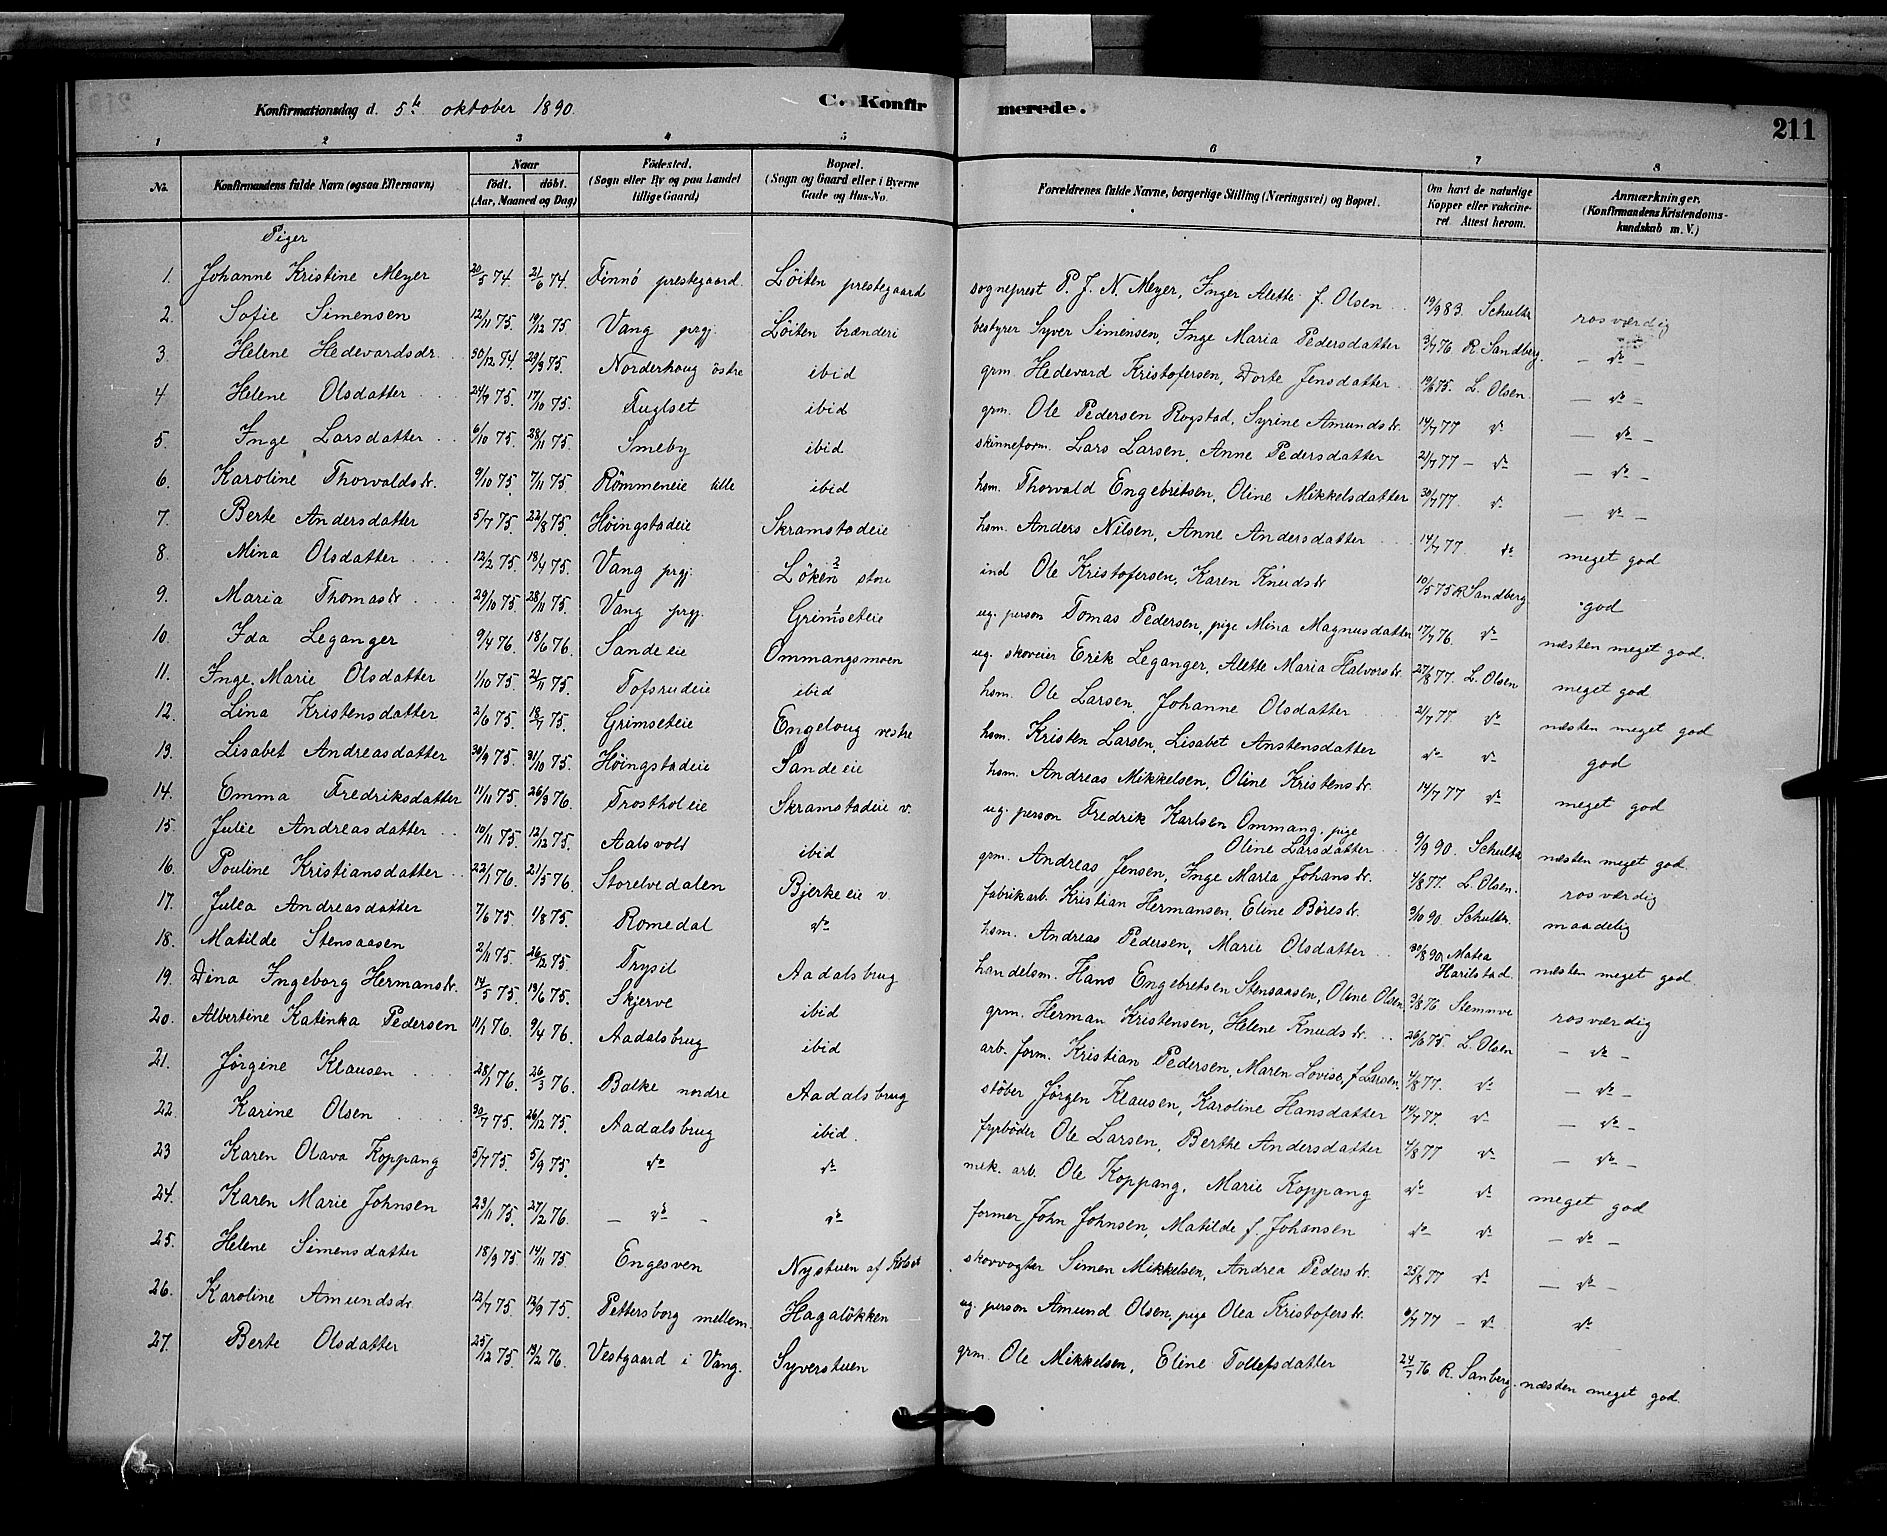 Konfirmationsdag d. 5te oktober 1890.
C. Konfir
merede.
211
1 2 3 4 5 6 7 8
No. Konfirmandens fulde Navn (ogsaa Efternavn) Naar födt. döbt. (Aar, Maaned og Dag) Födested. (Sogn eller By og paa Landet tillige Gaard) Bopæl. (Sogn og Gaard eller i Byerne Gade og Hus-No. Forældrenes fulde Navne, borgerlige Stilling (Næringsvei) og Bopæl. Om havt de naturlige Kopper eller vakcineret Attest herom. Anmærkninger. (Konfirmandens Kristendomskundskab m. V.)
Piger
1. Johanne Kristine Meyer 20/5 74. 21/6 74. Finnö prestegaard. Löiten prestegaard sogneprest P. J. N. Meyer, Inger Alette f. Olsen 19/9 83. Schultz rosværdig
2. Sofie Simensen 12/11 75. 19/12 75 Vang prgj. Löiten brænderi bestyrer Syver Simensen, Inge Maria Pedersdatter 3/7 76 R. Sandberg. — do —
3. Helene Hedevardsdr. 30/12 74. 29/3 75. Norderhoug östre ibid grm. Hedevard Kristofersen, Dorte Jensdatter 19/6 75. L. Olsen. — do —
4 Helene Olsdatter 24/9 75. 17/10 75. Fuglset ibid grm. Ole Pedersen Rogstad, Syrine Amundsdr. 14/7 77 do — do —
5. Inge Larsdatter 6/10 75. 28/11 75. Smeby ibid skinneform. Lars Larsen, Anne Pedersdatter 21/7 77 — do — do —
6. Karoline Thorvaldsdr. 9/10 75. 7/11 75. Römmeneie lille ibid hsm. Thorvald Engebritsen, Oline Mikkelsdatter 30/7 77. do — do —
7. Berte Andersdatter 5/7 75. 22/8 75. Höingstadeie Skramstadeie hsm. Anders Nilsen, Anne Andersdatter 14/7 77. do meget god
8. Mina Olsdatter 12/2 75. 18/4 75. Vang prgj. Löken store ind Ole Kristofersen, Karen Knudsdr. 10/5 75 R Sandberg god
9. Maria Thomasdr. 29/10 75. 28/11 75. Vang prgj. Grimseteie ug. person Tomas Pedersen, pige Mina Magnusdatter 17/7 76. do næsten meget god.
10. Ida Leganger 9/4 76. 18/6 76. Sande eie Ommangsmoen ug. skoveier Erik Leganger, Alette Maria Halvorsdr. 27/8 77. L. Olsen meget god
11. Inge Marie Olsdatter 1/10 75. 21/11 75. Tofsrudeie ibid hsm. Ole Larsen, Johanne Olsdatter 21/7 77. do næsten meget god
12. Lina Kristensdatter 2/6 75. 18/7 75. Grimseteie Engeloug vestre hsm. Kristen Larsen, Lisabet Anstensdatter do do god
13. Lisabet Andreasdatter 30/9 75. 31/10 75. Höingstadeie Sande eie hsm. Andreas Mikkelsen, Oline Kristensdr. 14/7 77 do meget god
14. Emma Fredriksdatter 11/11 75. 26/3 76. Frostholeie Skramstadeie v. ug. person Fredrik Karlsen Ommang, pige Oline Larsdatter 9/9 90. Schultz næsten meget god.
15. Julie Andreasdatter 10/11 75. 12/12 75. Aalsvold ibid grm. Andreas Jensen, Inge Maria Johansdr. 4/8 77. L. Olsen. rosværdig
16. Pouline Kristiansdatter 22/1 76. 21/5 76. Storelvedalen Bjerkeeie v. fabrikarb. Kristian Hermansen, Eline Böresdr. 3/10 90. Schultz maadelig
17. Julea Andreasdatter 7/6 75. 1/8 75. Romedal do hsm. Andreas Pedersen, Marie Olsdatter 30/8 90. Matea Harilstad. næsten meget god.
18. Matilde Stensaasen 2/11 75. 26/12 75. Trysil Aadalsbrug handelsm. Hans Engebretsen Stensaasen, Oline Olsen 3/8 76 Stemnve rosværdig
19. Dina Ingeborg Hermansdr. 14/5 75. 13/6 75. Skjerve ibid grm. Herman Kristensen, Helene Knudsdr. 26/6 75. L. Olsen — do —
20. Albertine Katinka Pedersen 11/1 76. 9/4 76. Aadalsbrug ibid arb. form. Kristian Pedersen, Maren Lovise, f Larsen. 4/8 77. do — do —
21. Jörgine Klausen 28/1 76. 26/3 76. Balke nordre Aadalsbrug stöber Jörgen Klausen, Karoline Hansdatter 14/7 77. do — do —
22. Karine Olsen 30/7 75. 26/12 75. Aadalsbrug ibid. fyrböder Ole Larsen, Berthe Andersdatter 4/8 77 do — do —
23 Karen Olava Koppang 5/7 75. 5/9 75. do do mek. arb. Ole Koppang, Marie Koppang do do meget god
24. Karen Marie Johnsen 23/11 75. 27/2 76. — do — do former John Johnsen, Matilde f. Johansen do do — do —
25. Helene Simensdatter 18/9 75. 14/11 75. Engesven Nystuen af skovvogter Simen Mikkelsen, Andrea Pedersdr. 25/8 77 do — do —
26. Karoline Amundsdr. 12/7 75. 12/9 75. Pettersborg mellem. Hagalökken ug. person Amund Olsen, pige Olea Kristofersdr. 6/7 77 — do do
27. Berte Olsdatter 25/12 75. 13/2 76. Vestgaard i Vang. Syverstuen grm. Ole Mikkelsen, Eline Tollefsdatter 24/7 76 R. Sanberg. næsten meget god.